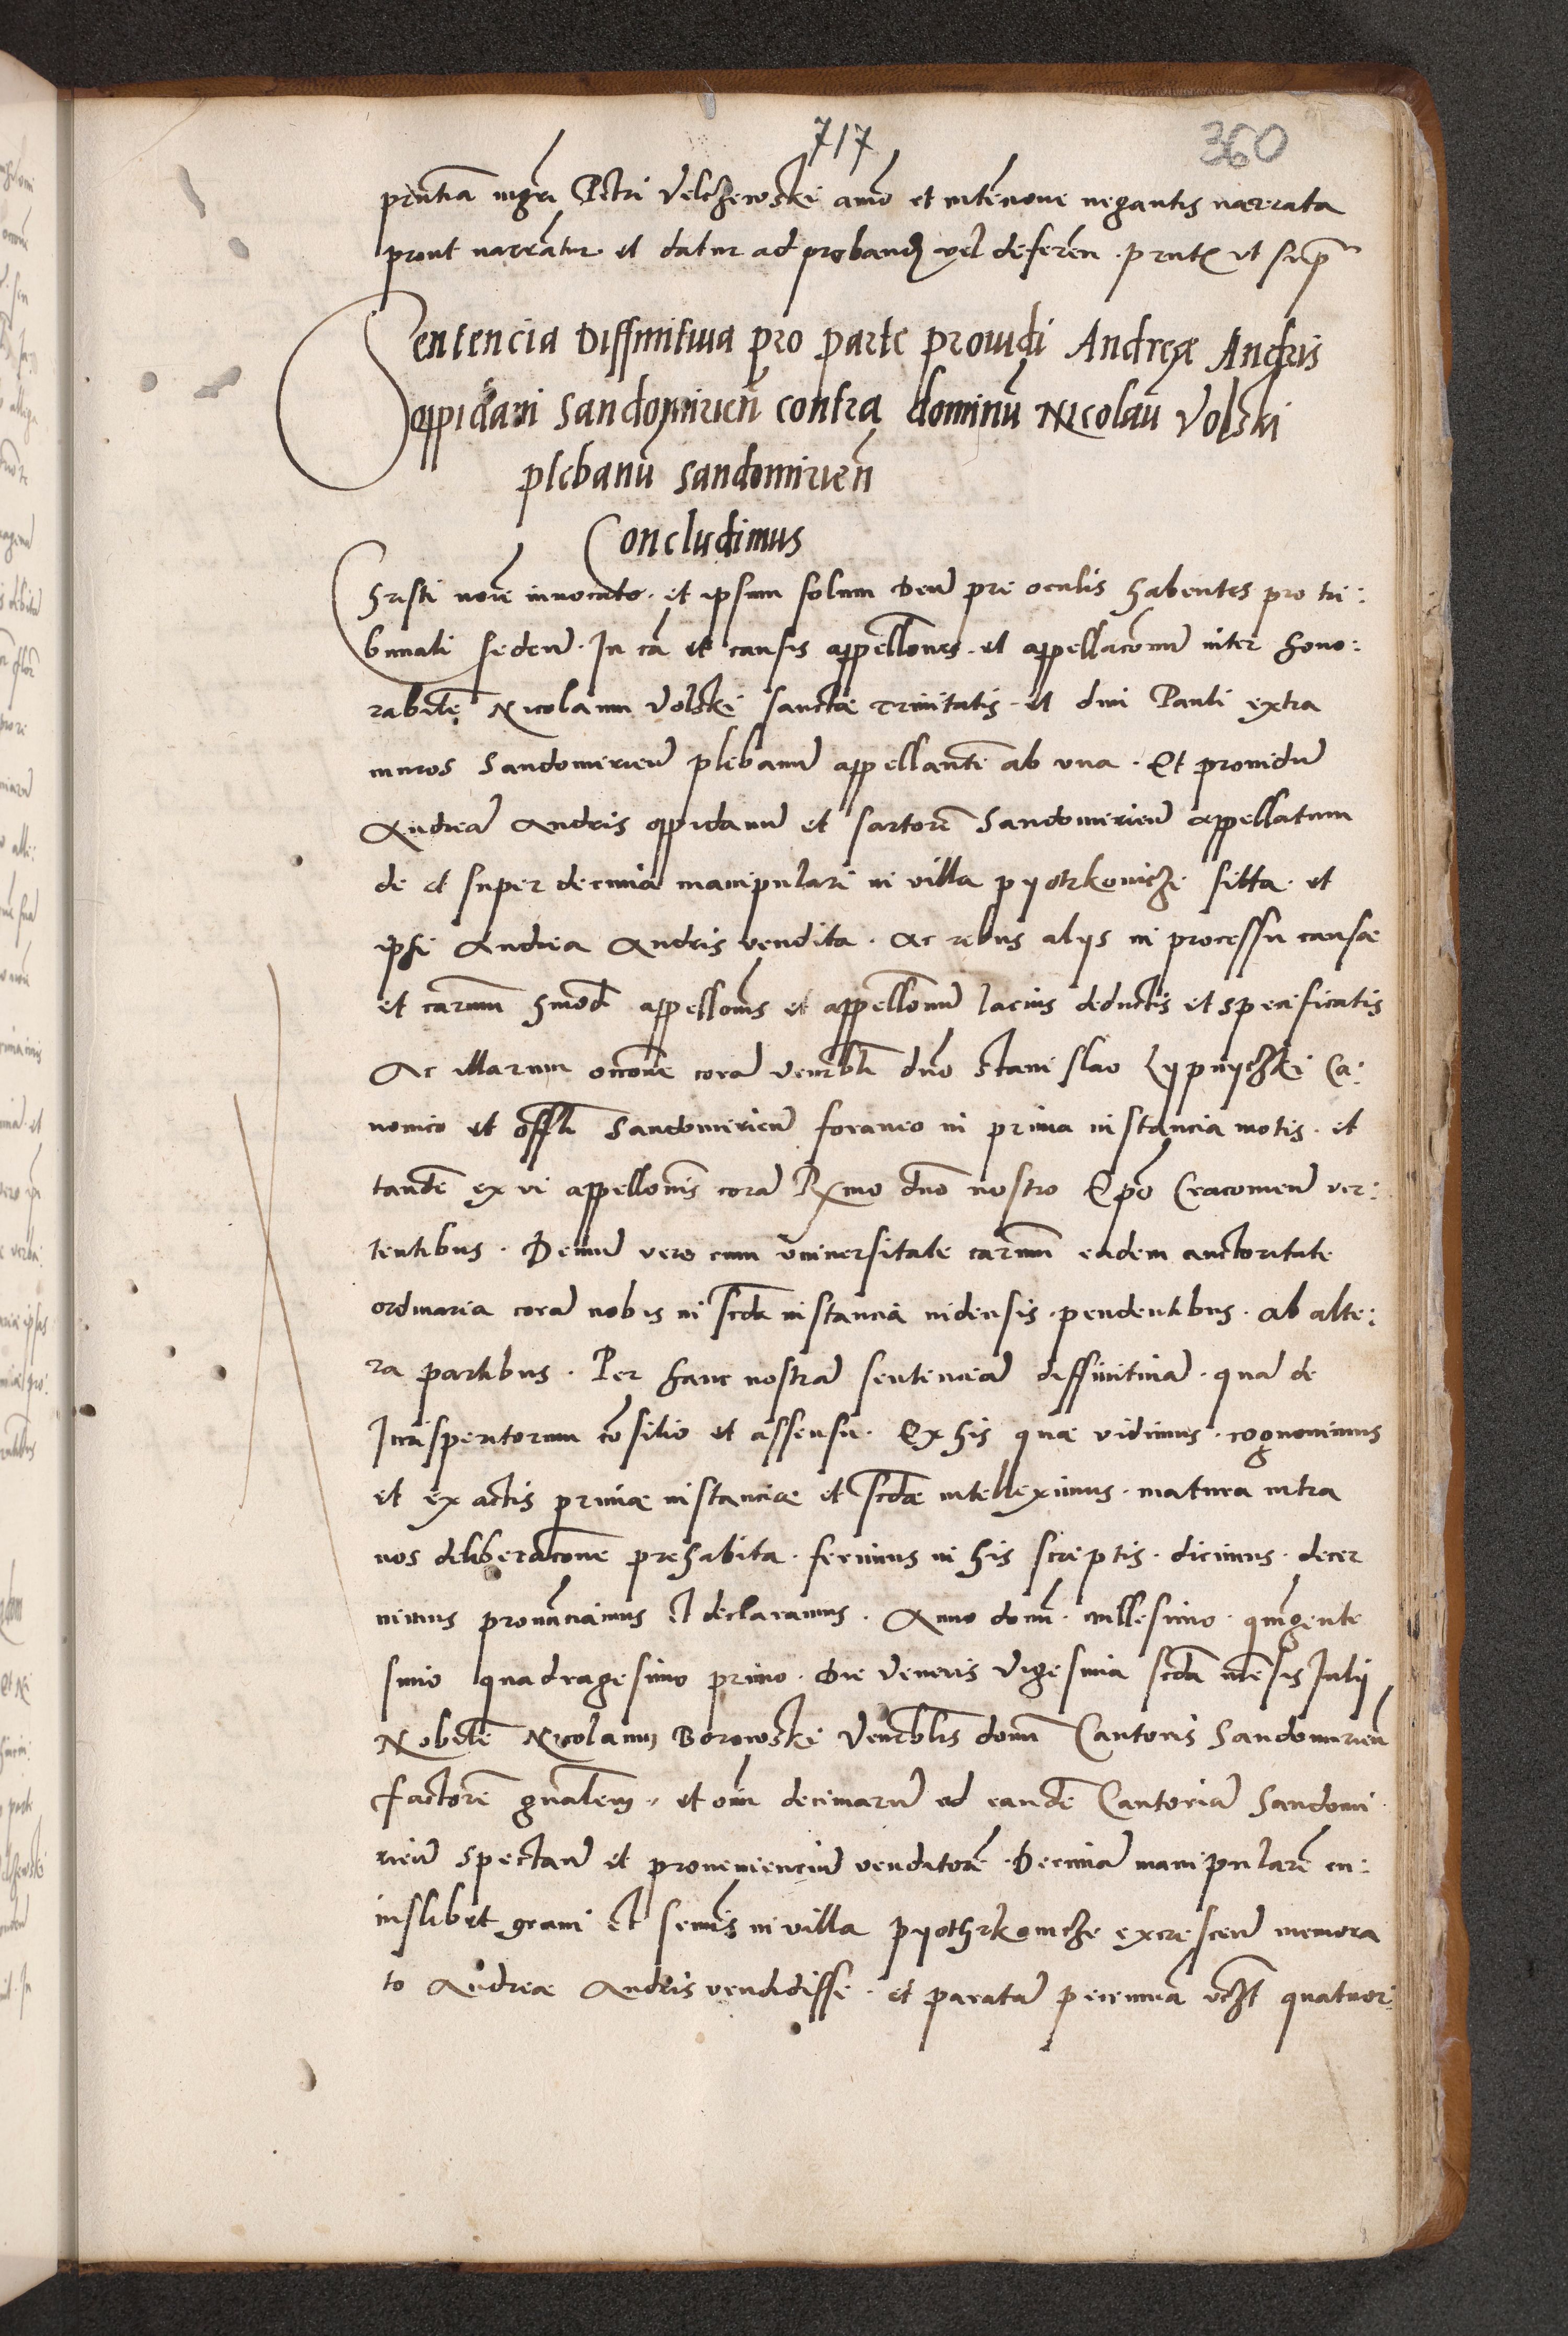 717
360
prntia mgri Petri Velchewski aio et intencione negantis narrata
prout narratur et datur ad proband vel deferen. prntes ut supra
Sentencia Diffinitiua pro parte prouidi Andreæ Andris
oppidani Sandomirien̄ contra dominū Nicolaū Volski
plebanū Sandomirien̄
Concludimus
Christi noīe inuocato. et ipsum solum Deū pre oculis habentes pro tri:
bunali seden̄. In cā et causis appellōnis. et appellacōnū inter hono:
rabilē Nicolaum Volski sanctæ Trinitatis. et diui Pauli extra
muros Sandomirien̄ plebanū appellantē ab vna. Et prouidū
Andreā Andris oppidanū et sartorē Sandomirien̄ appellatum
de et super decima manipulari in villa pyotrkowicze sitta. et
ipsi Andreæ Andris vendita. Ac rebus alijs in processu causæ
et carum hmōdi appellōnis et appellōnū lacius deductis et specificatis
Ac illarum occōne corā venrbli dno Stanislao Lypnyczki Ca:
nonico et offli Sandomirien̄ foraneo in prima instancia motis. et
tandē ex vi appellōnis corā Rxmo dno nostro Epō Cracouien̄ ver:
tentibus. Demū vero cum vniuersitate carum eadem auctoritate
ordinaria corā nobis in scda instancia indensis. pendentibus. ab alte:
ra partibus. Per hanc nostrā sentenciā diffinitiuā. quā de
Jurisperitorum cōsilio et assensu. Ex his quæ vidimus. cognouimus
et ex actis primæ instanciæ et scdæ intelleximus. matura intra
nos deliberacōne prehabita. ferimus in his scriptis. dicimus. decer
nimus pronūciamus et declaramus. Anno domī. millesimo. quīgente
simo quadragesimo primo. Die Veneris vigesima scda mēsis Julij
Nobilē Nicolaum Borowski Venrblis domi Cantoris Sandomirien̄
factorē gnalem. et oīm decimarū ad eandē Cantoriā Sandomi
rien̄ spectan̄ et proueniencium venditorē. Decimā manipularē cu:
iuslibet grani et semīs in villa pyothrkowicze excrescen̄ memora
to Andreæ Andris vendidisse. et paratā pecuniā vczt quatuor: